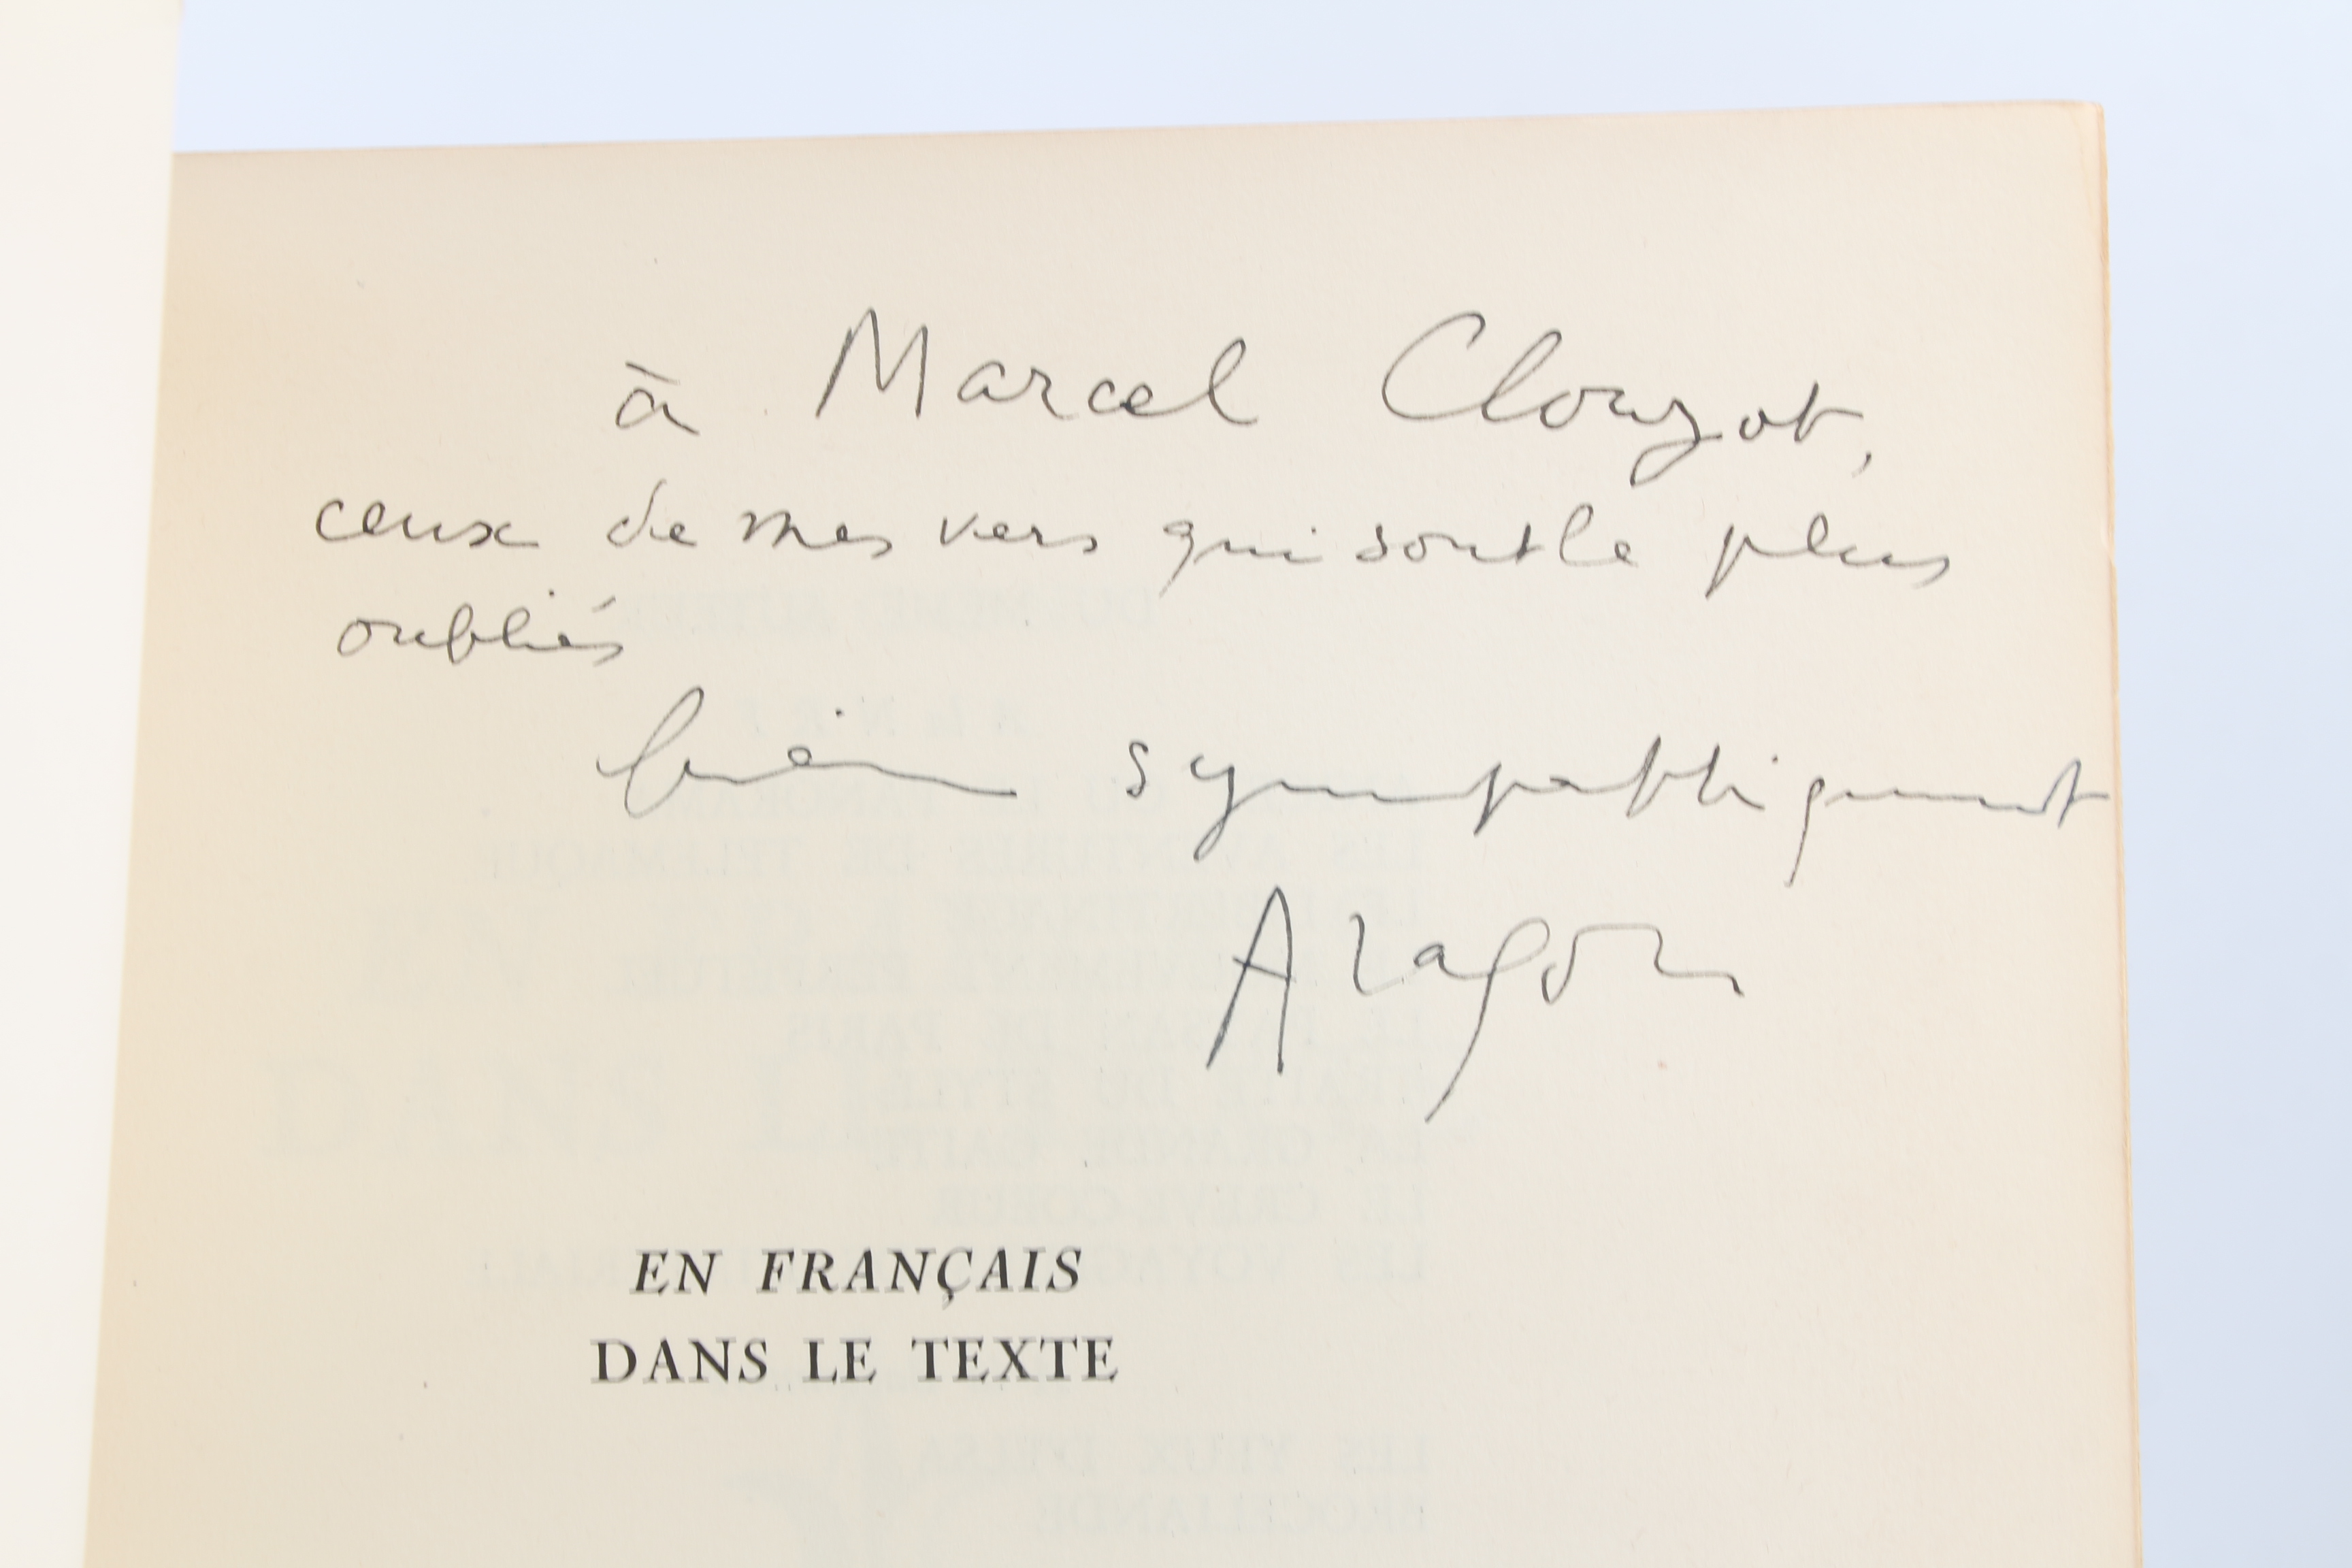 à Marcel Clouzot,
ceux de mes vers qui sont le plus
oubliés
bien sympathiquement
Aragon
EN FRANÇAIS
DANS LE TEXTE